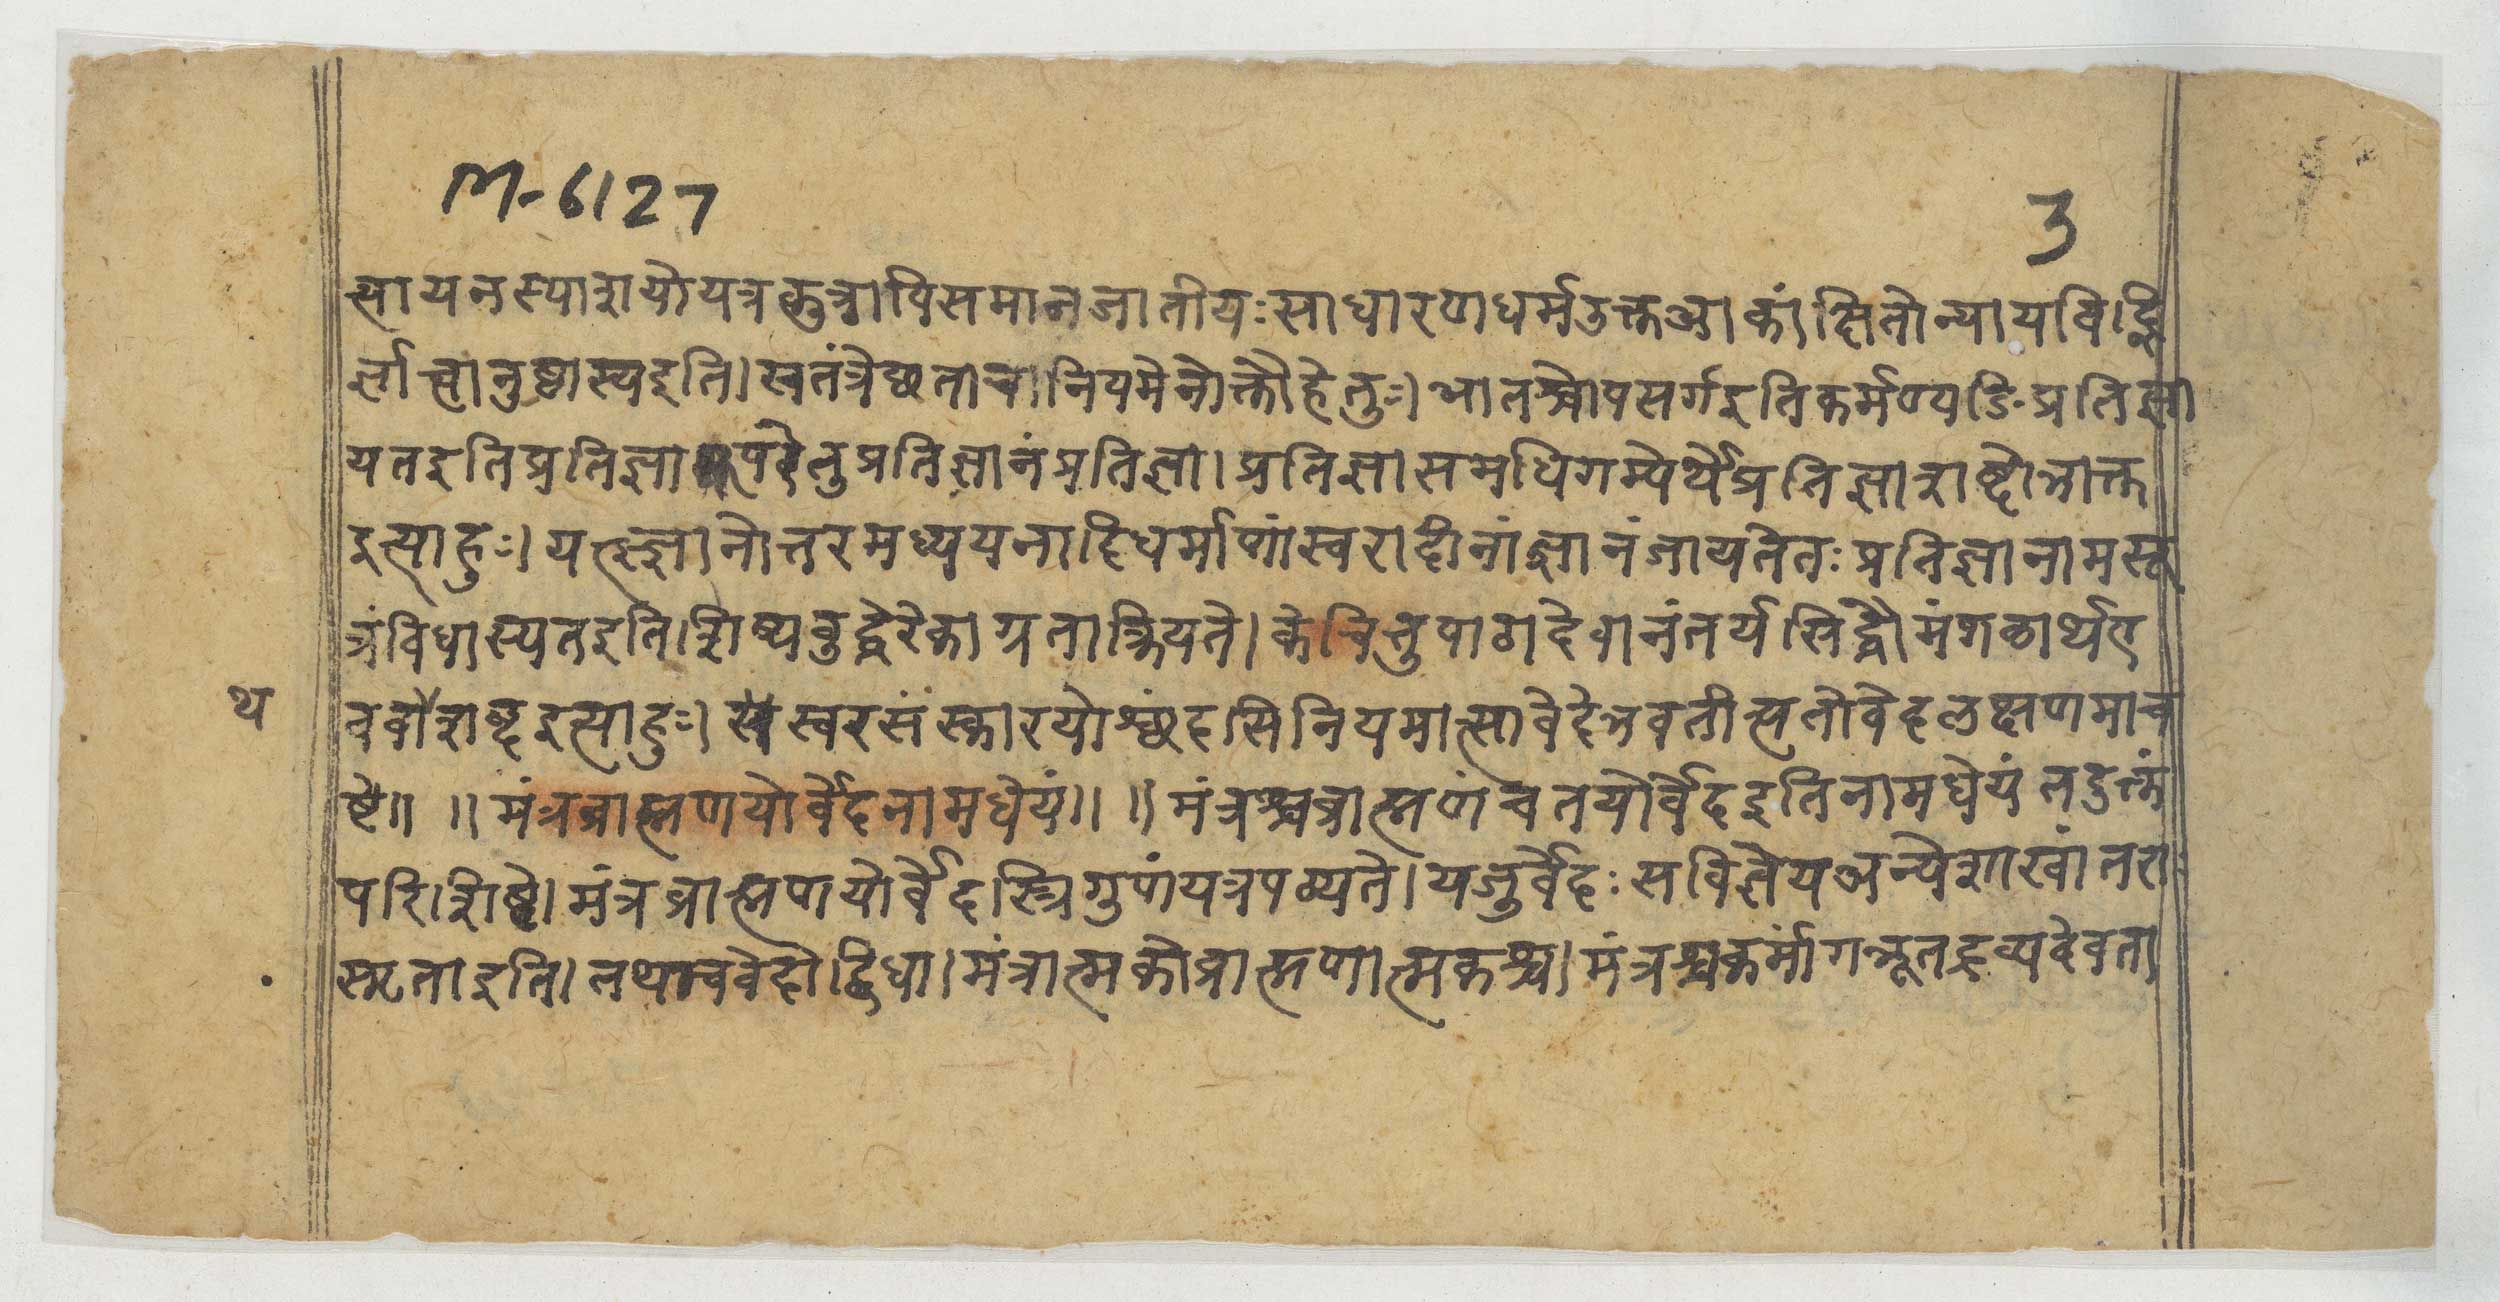 M-6127
3
त्यायनस्याशयोयत्रकुत्रापिसमानजातीयःसाधारणधर्मउक्तआकांक्षितोन्यायविद्भि
र्ज्ञात्वानुष्ठास्यइति। स्वतंत्रेछताच। नियमेनोक्तौहेतुः। आतश्चोपसर्गइतिकर्मण्यङिप्रतिज्ञा
यतइतिप्रतिज्ञा हेतुप्रतिज्ञानंप्रतिज्ञा। प्रतिज्ञासमधिगम्येर्थेप्रतिज्ञाशब्दोभाक्त
इत्याहुः। यत्ज्ज्ञानोत्तरमध्ययनादिधर्माणांस्वरादीनांज्ञानंजायतेतःप्रतिज्ञानामसू
त्रंविधास्यतइति। शिष्यबुद्धेरेकाग्रताक्रियते। केचित्तुपाठादेवानंतर्यसिद्धौमंगलार्थए
थ
वशब्दइत्याहुः। स्वरसंस्कारयोश्छंदसिनियमात्सावेदेभवतीत्यतोवेदलक्षणमाच
ष्टे॥ ॥ मंत्रब्राह्मणयोर्वेदनामधेयं॥ ॥ मंत्रश्चब्राह्मणंचतयोर्वेदइतिनामधेयं तदुक्तं
परिशिष्टे। मंत्रब्राह्मणयोर्वेदस्त्रिगुणंयत्रपठ्यते। यजुर्वेदःसविज्ञेयअन्येशाखांतरा
स्मृताइति। तथाचवेदोद्विधा। मंत्रात्मकोब्राह्मणात्मकश्च। मंत्रश्चकर्मांगभूतद्रव्यदेवता